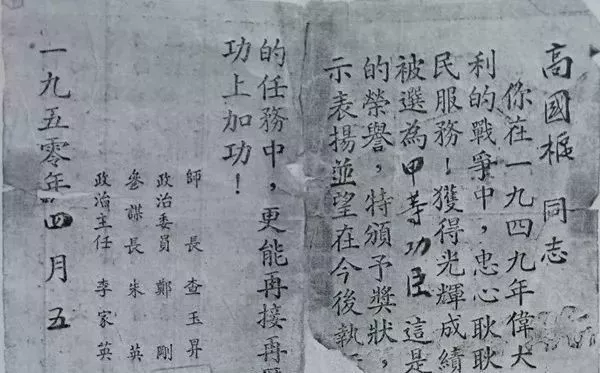 高國 同志
你在一九四九年偉大
利的戰爭中，忠心耿耿
民服務！獲得光輝成績
被選為甲等功臣 這是
的榮譽，特頒予獎狀，
示表揚並望在今後執
的任務中，更能再接再
功上加功！
師長 查玉昇
政治委員 鄭剛
參謀長 朱英
政治主任 李家英
一九五零年四月五